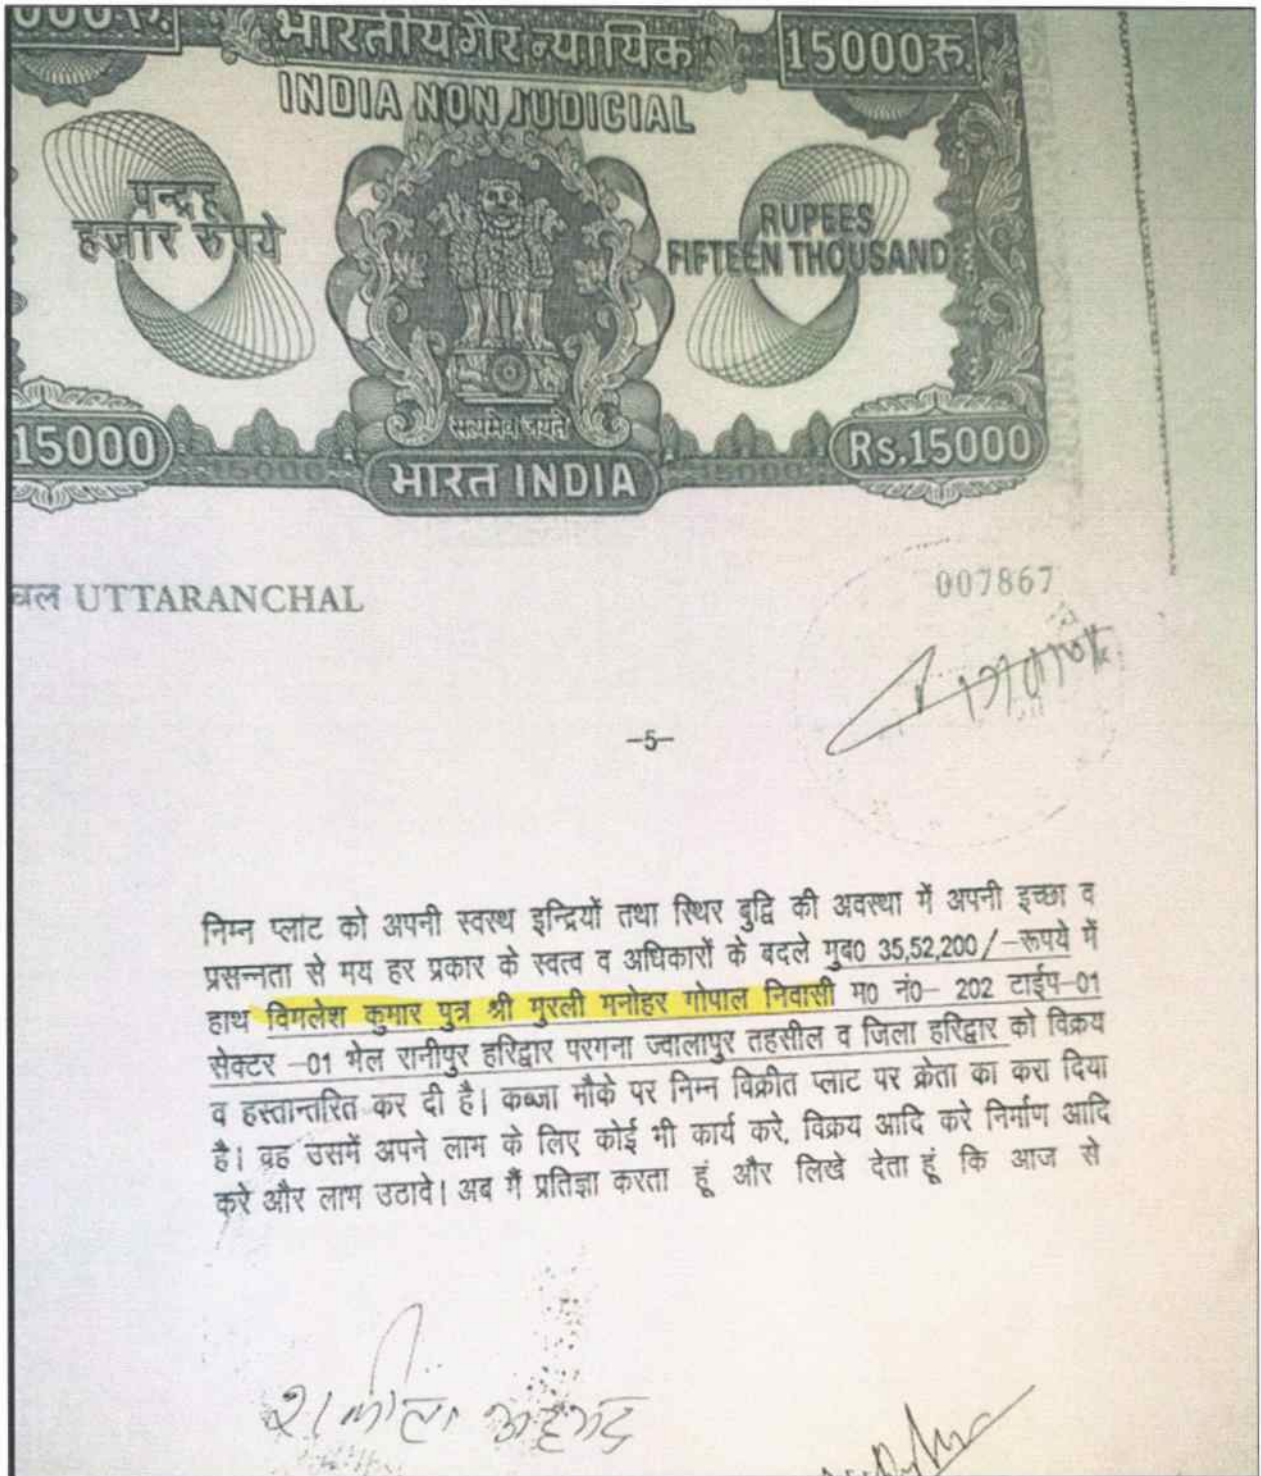 भारतीय गैर न्यायिक
15000रु.
INDIA NON JUDICIAL
पन्द्रह
हजार रुपये
RUPEES
FIFTEEN THOUSAND
सत्यमेव जयते
15000
Rs.15000
भारत INDIA
UTTARANCHAL
007867
–5–
निम्न प्लांट को अपनी स्वस्थ इन्द्रियों तथा स्थिर बुद्वि की अवस्था में अपनी इच्छा व
प्रसन्नता से मय हर प्रकार के स्वत्व व अधिकारों के बदले मुव0 35,52,200/–रूपये में
हाथ विमलेश कुमार पुत्र श्री मुरली मनोहर गोपाल निवासी म0 नं0– 202 टाईप–01
सेक्टर –01 भेल रानीपुर हरिद्वार परगना ज्वालापुर तहसील व जिला हरिद्वार को विक्रय
व हस्तान्तरित कर दी है। कब्जा मौके पर निम्न विक्रीत प्लाट पर क्रेता का करा दिया
है। वह उसमें अपने लाभ के लिए कोई भी कार्य करे, विक्रय आदि करे निर्माण आदि
करे और लाभ उठावे। अब मैं प्रतिज्ञा करता हूं और लिखे देता हूं कि आज से
अहमद